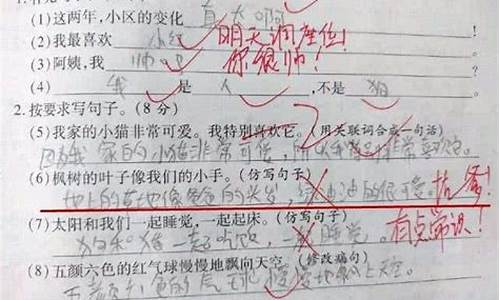 (1)这两年，小区的变化 真大啊
(2)我最喜欢 小红 明天调座位！
(3)阿姨，我 帅吧 你很帅！
(4) 我 是 人 ，不是 狗
2.按要求写句子。(8分)
(5)我家的小猫非常可爱。我特别喜欢它。(用关联词合成一句话)
因为我家的小猫非常可爱，所以我 非常喜欢它。
(6)枫树的叶子像我们的小手。(仿写句子)
地上的草地像爸爸的头发，绿油油的很可爱。
(7)太阳和我们一起睡觉，一起起床。(仿写句子)
狗和猪一起吃饭，一起睡觉。 有点常识！
(8)五颜六色的红气球慢慢地飘向天空。(修改病句)
五颜六色的气球慢慢地飘上天空。